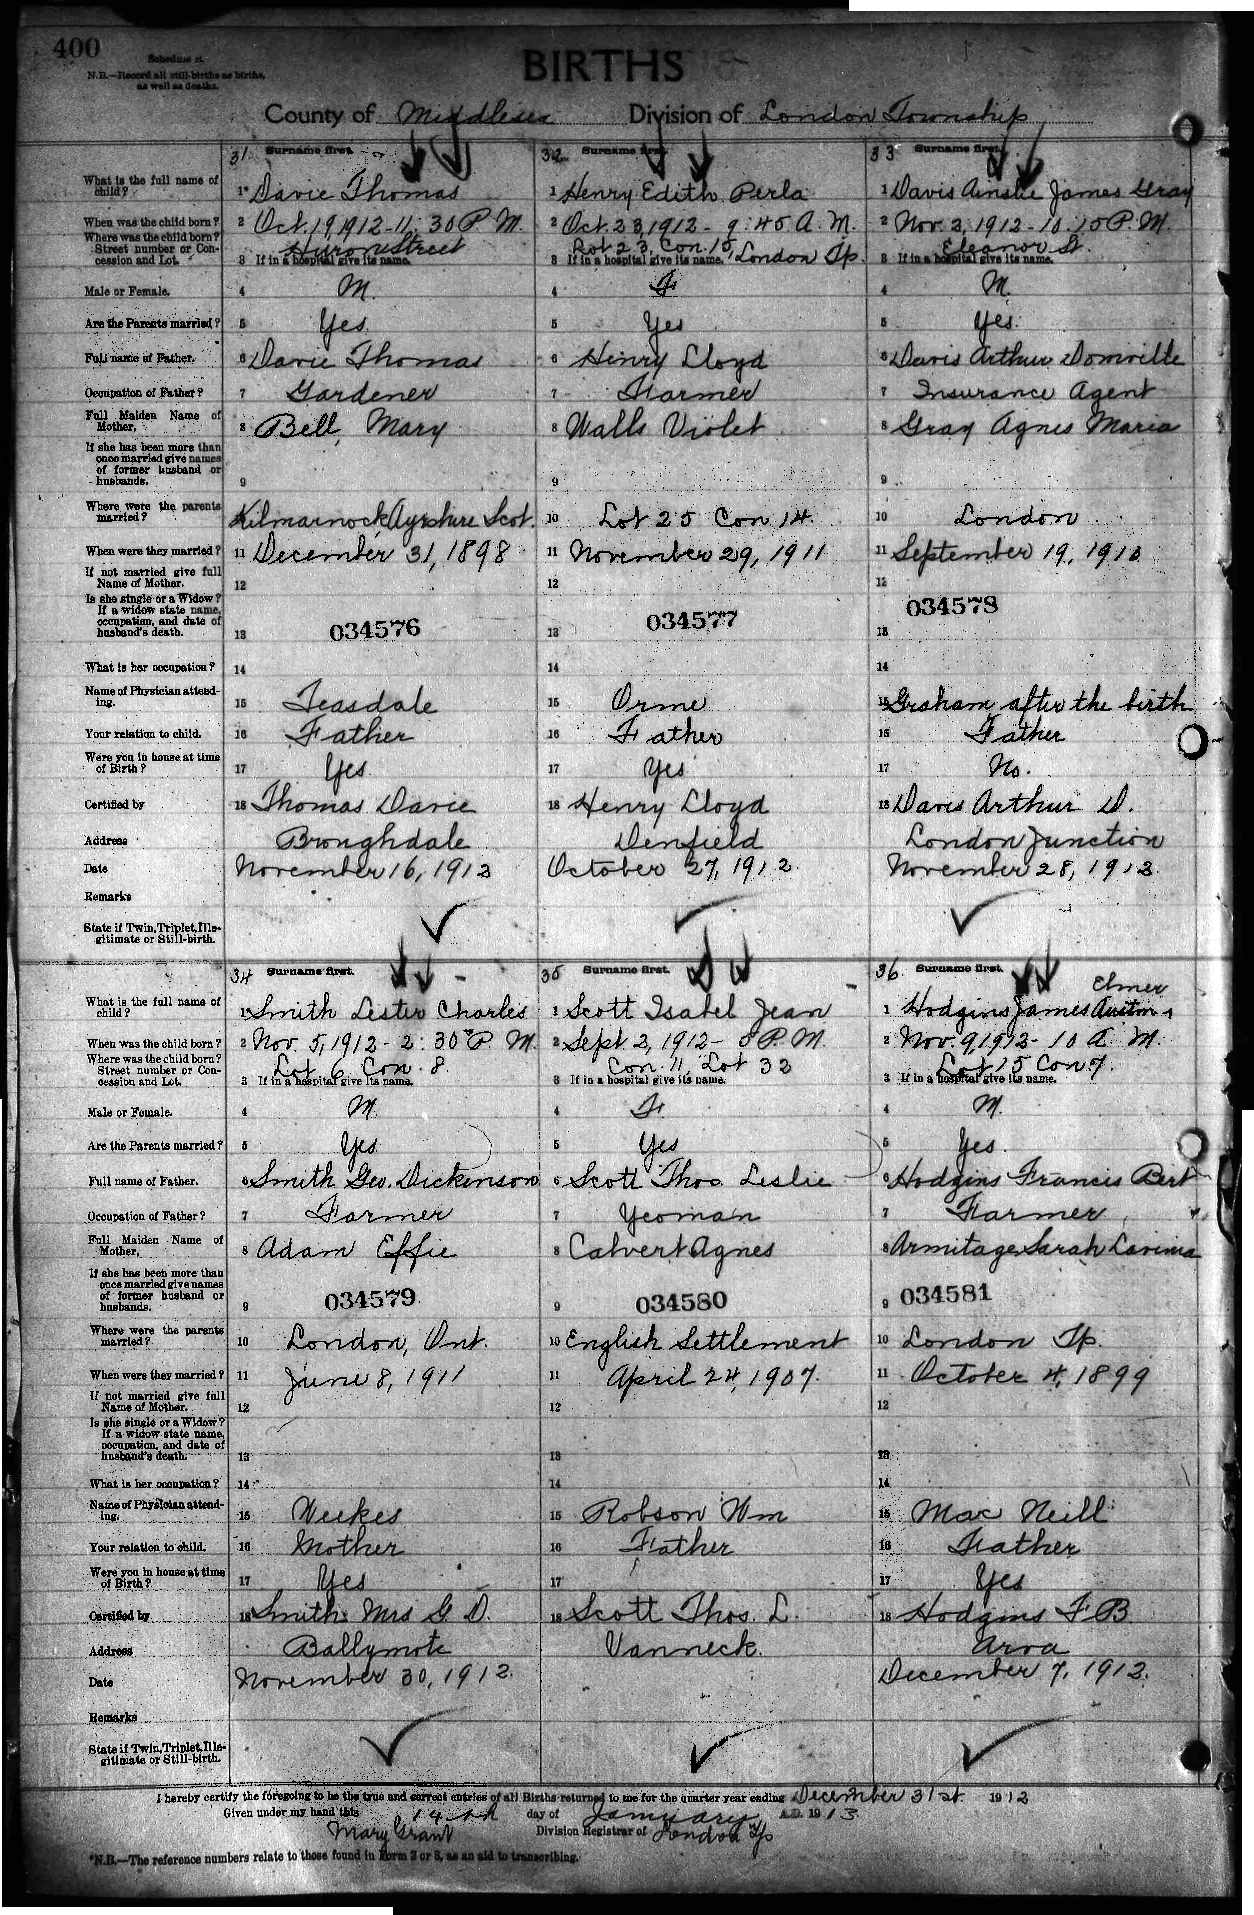 400
Schedule A.
N.B.—Record all still-births as births,
as well as deaths.
BIRTHS
County of Middlesex Division of London Township
31 Surname first. 32 Surname first. 33 Surname first.
What is the full name of child? 1* Davie Thomas 1 Henry Edith Perla 1 Davis Ainslie James Gray
When was the child born? 2 Oct. 19, 1912 - 11:30 P.M. 2 Oct. 23, 1912 - 9:45 A.M. 2 Nov. 2, 1912 - 10:10 P.M.
Where was the child born? Street number or Concession and Lot. 3 If in a hospital give its name. Huron Street 3 If in a hospital give its name. Lot 23, Con. 15, London Tp. 3 If in a hospital give its name. Eleanor St.
Male or Female. 4 M. 4 F 4 M.
Are the Parents married? 5 Yes 5 Yes 5 Yes.
Full name of Father. 6 Davie Thomas 6 Henry Lloyd 6 Davis Arthur Domville
Occupation of Father? 7 Gardener 7 Farmer 7 Insurance Agent
Full Maiden Name of Mother, 8 Bell, Mary 8 Walls Violet 8 Gray Agnes Maria
If she has been more than once married give names of former husband or husbands. 9 9 9
Where were the parents married? Kilmarnock, Ayrshire Scot. 10 Lot 25 Con 14. 10 London
When were they married? 11 December 31, 1898 11 November 29, 1911 11 September 19, 1910
If not married give full Name of Mother. 12 12 12
Is she single or a Widow? If a widow state name, occupation, and date of husband's death. 13 034576 13 034577 13 034578
What is her occupation? 14 14 14
Name of Physician attending. 15 Teasdale 15 Orme 15 Graham after the birth
Your relation to child. 16 Father 16 Father 15 Father
Were you in house at time of Birth? 17 Yes 17 Yes 17 No.
Certified by 18 Thomas Davie 18 Henry Lloyd 18 Davis Arthur D.
Address Broughdale Denfield London Junction
Date November 16, 1912 October 27, 1912. November 28, 1912.
Remarks
State if Twin, Triplet, Illegitimate or Still-birth.
34 Surname first. 35 Surname first. 36. Surname first.
What is the full name of child? 1* Smith Lester Charles 1 Scott Isabel Jean 1 Hodgins James Austin Elmer
When was the child born? 2 Nov. 5, 1912 - 2:30 P.M. 2 Sept. 2, 1912 - P.M. 2 Nov. 9, 1912 - 10 A.M.
Where was the child born? Street number or Concession and Lot. 3 If in a hospital give its name. Lot 6 Con. 8. 3 If in a hospital give its name. Con. 11, Lot 32 3 If in a hospital give its name. Lot 15 Con 7.
Male or Female. 4 M. 4 F. 4 M.
Are the Parents married? 5 Yes 5 Yes 5 Yes.
Full name of Father. 6 Smith Geo. Dickenson 6 Scott Thos Leslie 6 Hodgins Francis Bert
Occupation of Father? 7 Farmer 7 Yeoman 7 Farmer
Full Maiden Name of Mother, 8 Adam Effie 8 Calvert Agnes 8 Armitage Sarah Lavinia
If she has been more than once married give names of former husband or husbands. 9 034579 9 034580 9 034581
Where were the parents married? 10 London, Ont. 10 English Settlement 10 London Tp.
When were they married? 11 June 8, 1911 11 April 24, 1907. 11 October 4, 1899
If not married give full Name of Mother. 12 12 12
Is she single or a Widow? If a widow state name, occupation, and date of husband's death. 13 13 13
What is her occupation? 14 14 14
Name of Physician attending. 15 Weekes 15 Robson Wm 15 Mac Neill
Your relation to child. 16 Mother 16 Father 16 Father
Were you in house at time of Birth? 17 Yes 17 17 Yes
Certified by 18 Smith Mrs G. D. 18 Scott Thos. L. 18 Hodgins F B
Address Ballymote Vanneck. Arva
Date November 30, 1912. December 7, 1912.
Remarks
State if Twin, Triplet, Illegitimate or Still-birth.
I hereby certify the foregoing to be the true and correct entries of all Births returned to me for the quarter year ending December 31st 1912
Given under my hand this 14th day of January A.D. 1913
Mary Grant Division Registrar of London Tp
*N.B.—The reference numbers relate to those found in Form 2 or 3, as an aid to transcribing.